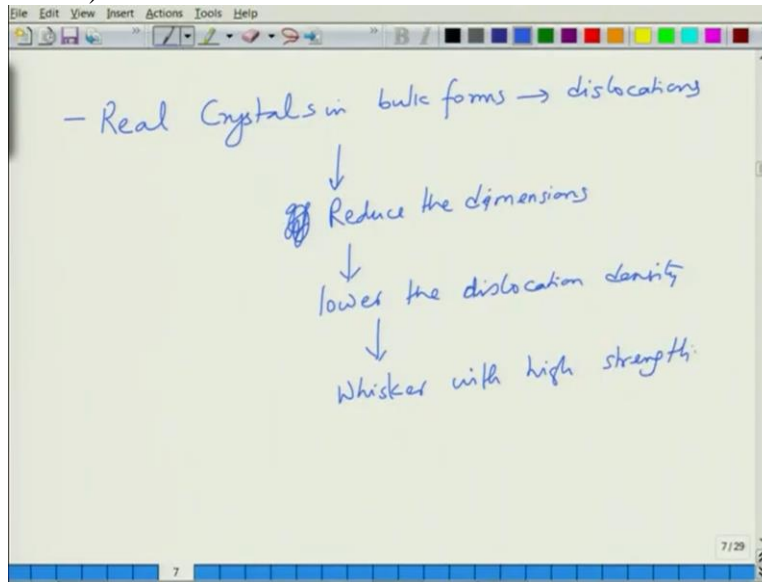 File Edit View Insert Actions Tools Help
- Real Crystals in bulk forms → dislocations
↓
Reduce the dimensions
↓
lower the dislocation density
↓
Whisker with high strength.
7/29
7